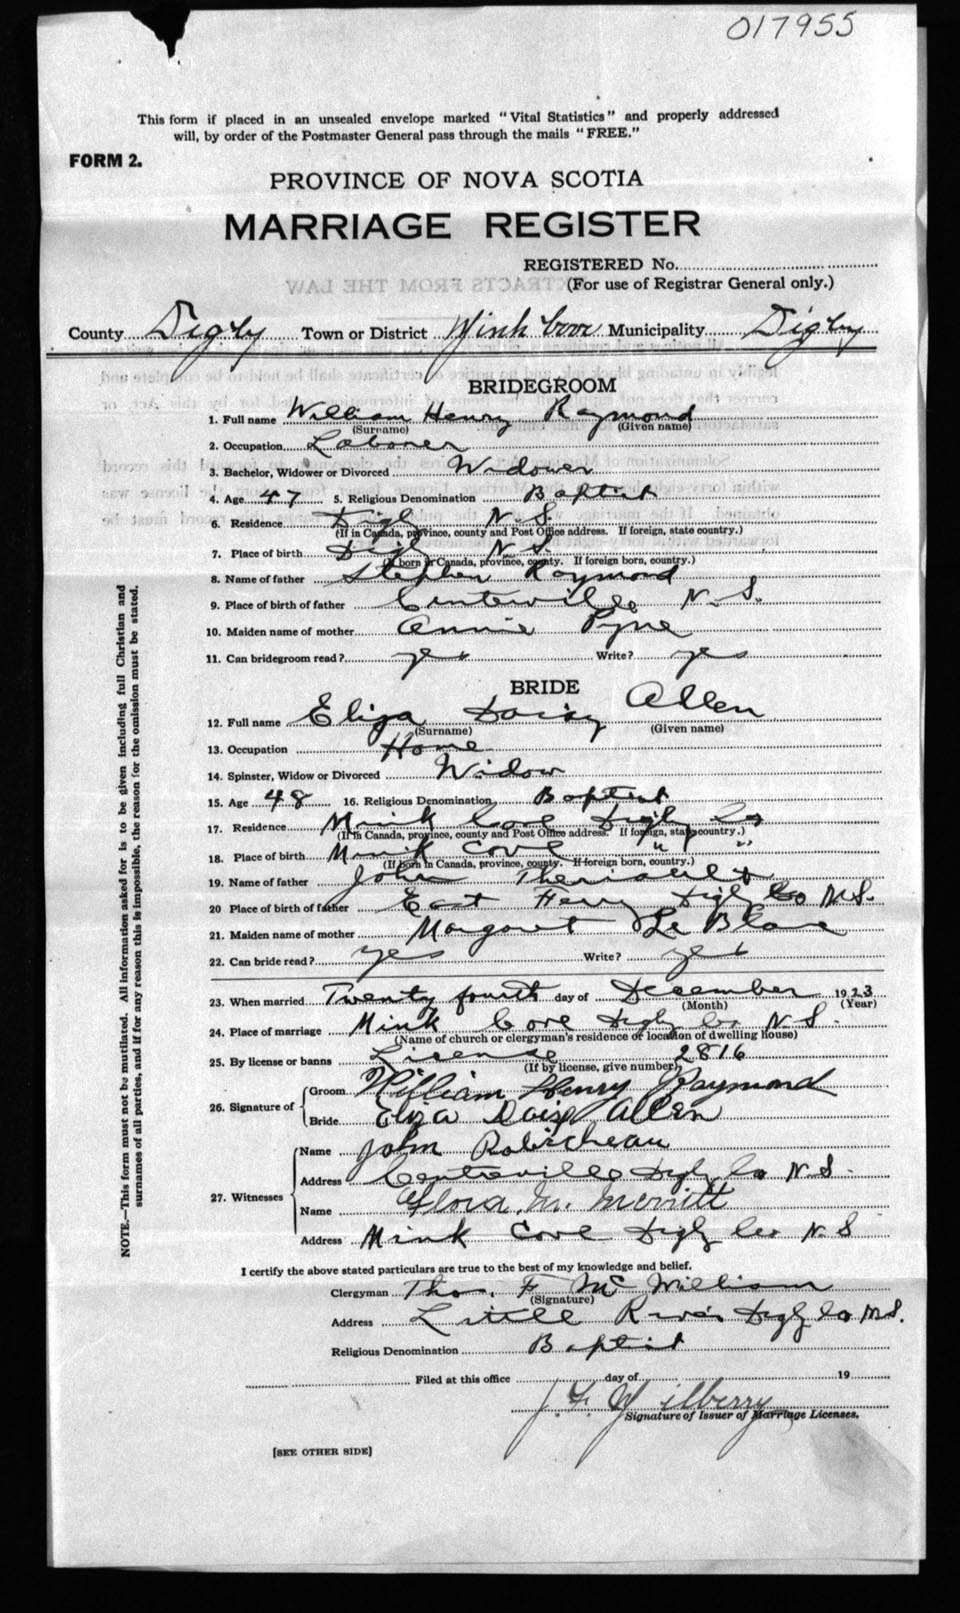 017955
This form if placed in an unsealed envelope marked "Vital Statistics" and properly addressed
will, by order of the Postmaster General pass through the mails "FREE."
FORM 2.
PROVINCE OF NOVA SCOTIA
MARRIAGE REGISTER
REGISTERED No.
(For use of Registrar General only.)
County Digby Town or District Mink Cove Municipality Digby
BRIDEGROOM
1. Full name William Henry Raymond
(Surname) (Given name)
2. Occupation Laborer
3. Bachelor, Widower or Divorced Widower
4. Age 47 5. Religious Denomination Baptist
6. Residence Digby N.S.
(If in Canada, province, county and Post Office address. If foreign, state country.)
7. Place of birth Digby N.S.
(If born in Canada, province, county. If foreign born, country.)
8. Name of father Stephen Raymond
9. Place of birth of father Centerville N.S.
10. Maiden name of mother Annie Pyne
11. Can bridegroom read? yes Write? yes
BRIDE
12. Full name Eliza Daisy Allen
(Surname) (Given name)
13. Occupation Home
14. Spinster, Widow or Divorced Widow
15. Age 48 16. Religious Denomination Baptist
17. Residence Mink Cove Digby Co
(If in Canada, province, county and Post Office address. If foreign, state country.)
18. Place of birth Mink Cove " "
(If born in Canada, province, county. If foreign born, country.)
19. Name of father John Theriault
20 Place of birth of father East Ferry Digby Co N.S.
21. Maiden name of mother Margaret Le Blanc
22. Can bride read? yes Write? yes
23. When married Twenty fourth day of December 1923
(Month) (Year)
24. Place of marriage Mink Cove Digby Co N.S.
(Name of church or clergyman's residence or location of dwelling house)
25. By license or banns License 2816
(If by license, give number)
26. Signature of Groom William Henry Raymond
Bride Eliza Daisy Allen
27. Witnesses Name John Robicheau
Address Centreville Digby Co N.S.
Name Flora M. Merritt
Address Mink Cove Digby Co N.S
I certify the above stated particulars are true to the best of my knowledge and belief.
Clergyman Tho. F McWilliam
(Signature)
Address Little River Digby Co N.S.
Religious Denomination Baptist
Filed at this office day of 19
Signature of Issuer of Marriage Licenses.
[SEE OTHER SIDE]
NOTE.—This form must not be mutilated. All information asked for is to be given including full Christian and
surnames of all parties, and if for any reason this is impossible, the reason for the omission must be stated.